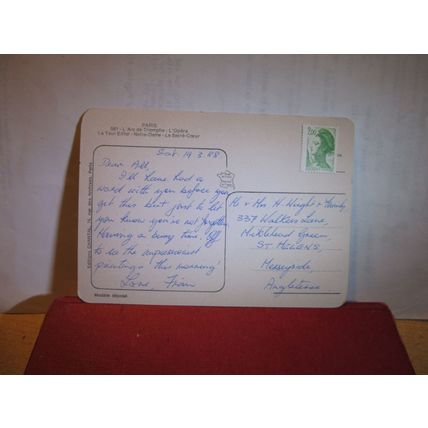 PARIS
381 - L'Arc de Triomphe - L'Opéra
La Tour Eiffel - Notre-Dame - Le Sacré-Cœur
Sat. 19.3.88
Dear All,
I'll have had a
word with you before you
get this but just to let
you know you're not forgotten
Having a busy time. Off
to see the impressionist
paintings this morning!
Love, Fran
Mr & Mrs H. Wright & Family,
337 Walkers Lane,
Micklehead Green,
ST HELENS,
Merseyside,
Angleterre
2,00
Editions CHANTAL, 74, rue des Archives, Paris
Modèle déposé